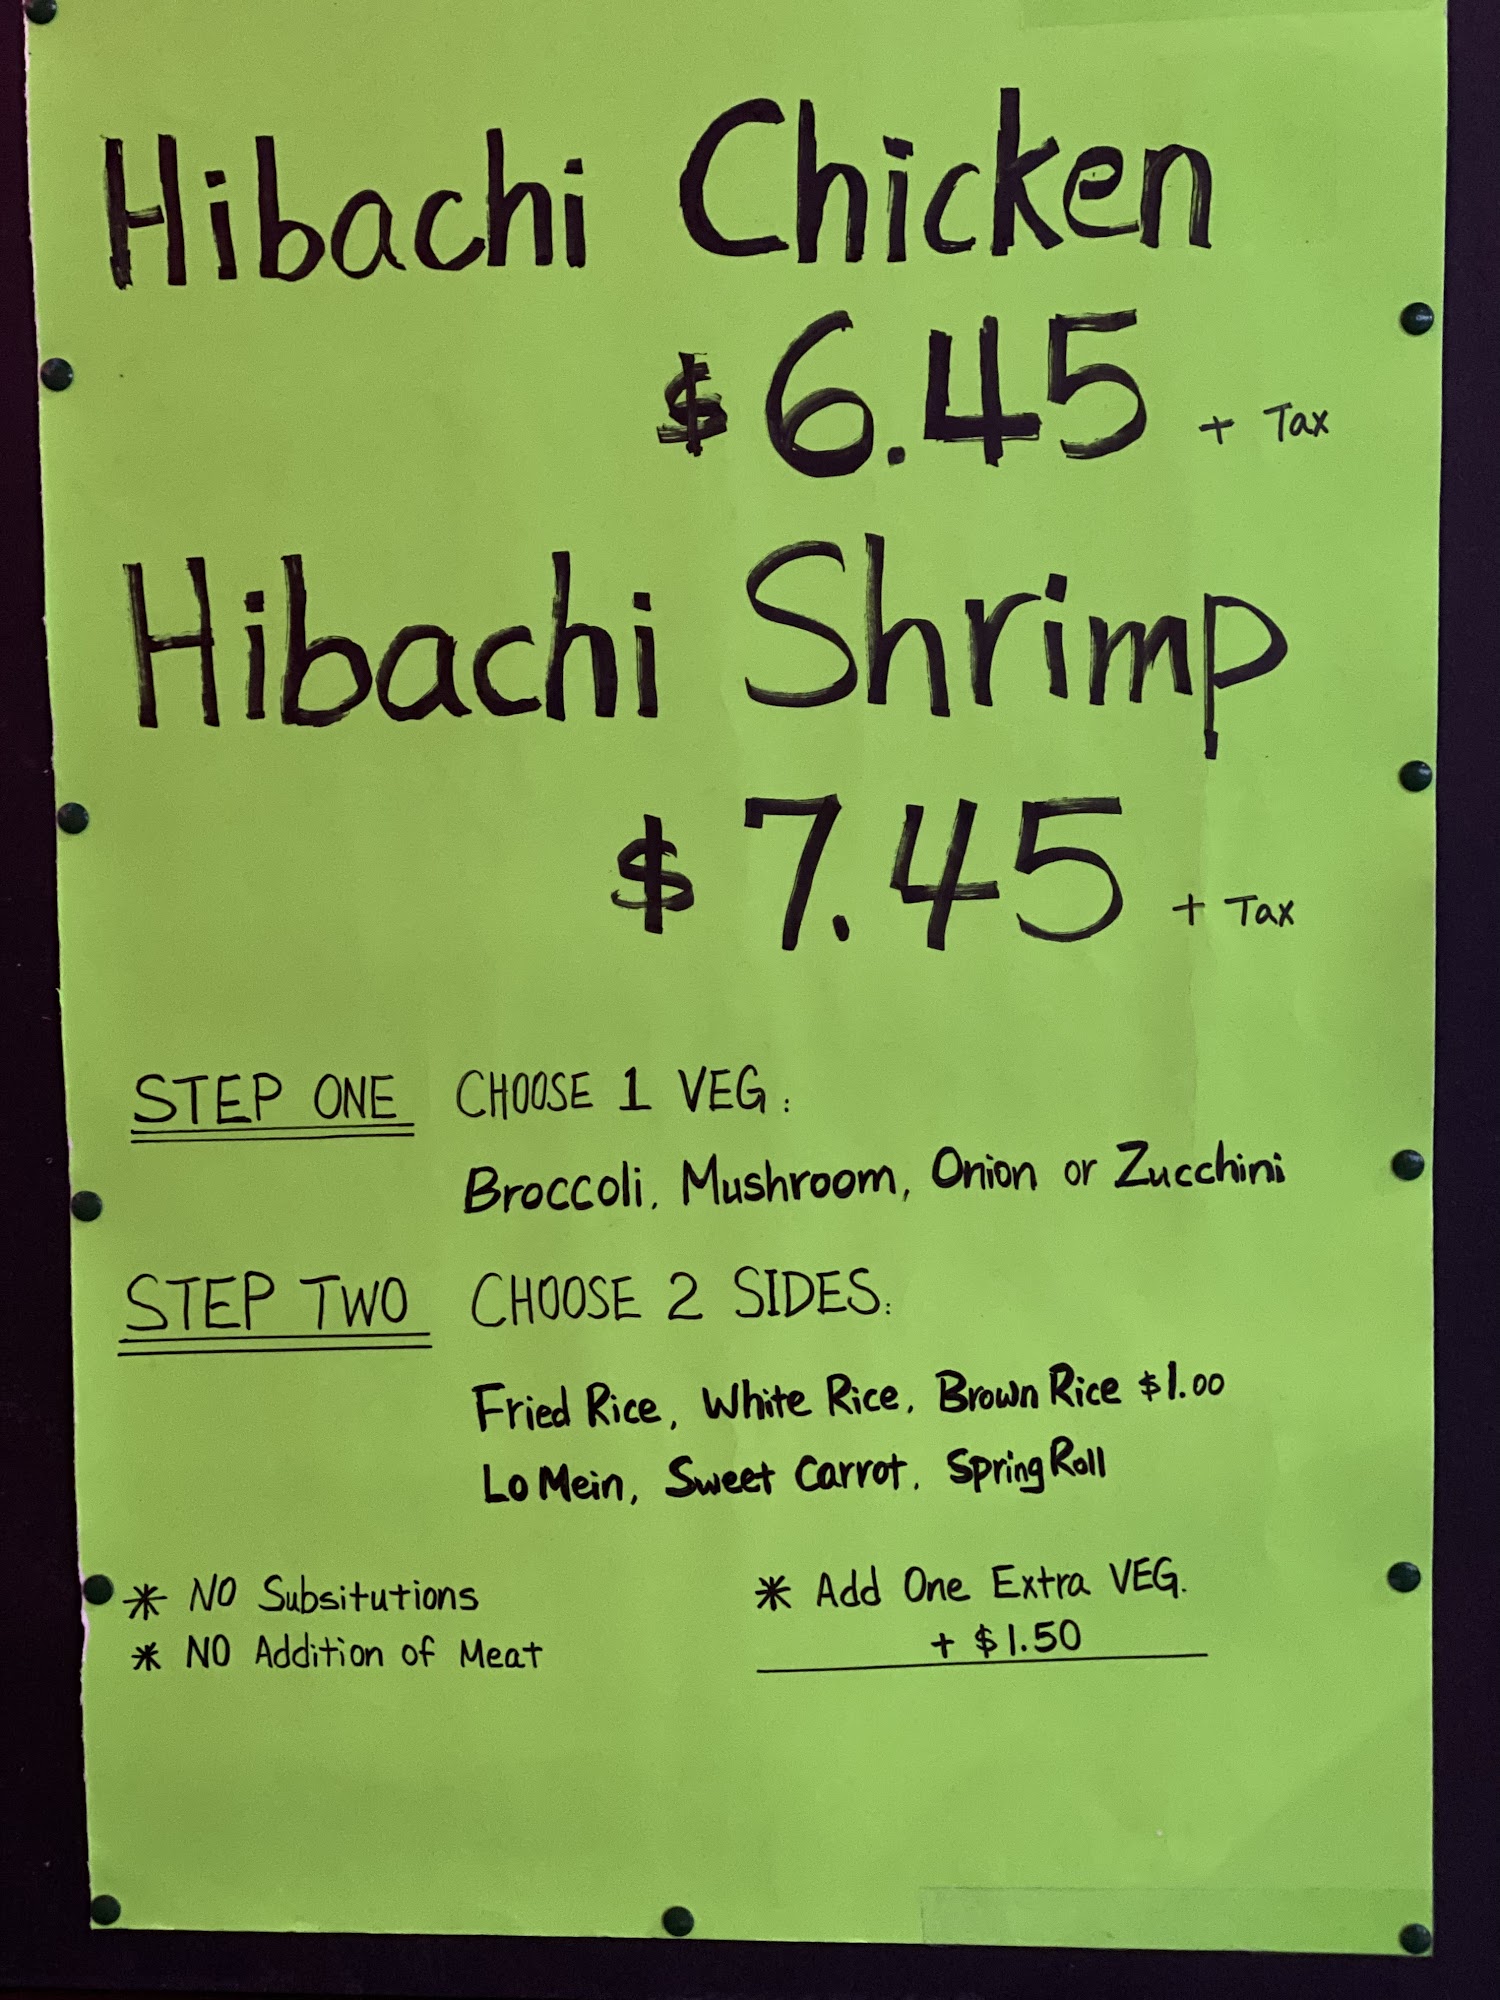 Hibachi Chicken
$6.45 + Tax
Hibachi Shrimp
$7.45 + Tax
STEP ONE CHOOSE 1 VEG:
Broccoli, Mushroom, Onion or Zucchini
STEP TWO CHOOSE 2 SIDES:
Fried Rice, White Rice, Brown Rice $1.00
Lo Mein, Sweet Carrot, Spring Roll
* NO Subsitutions
* NO Addition of Meat
* Add One Extra VEG.
+ $1.50